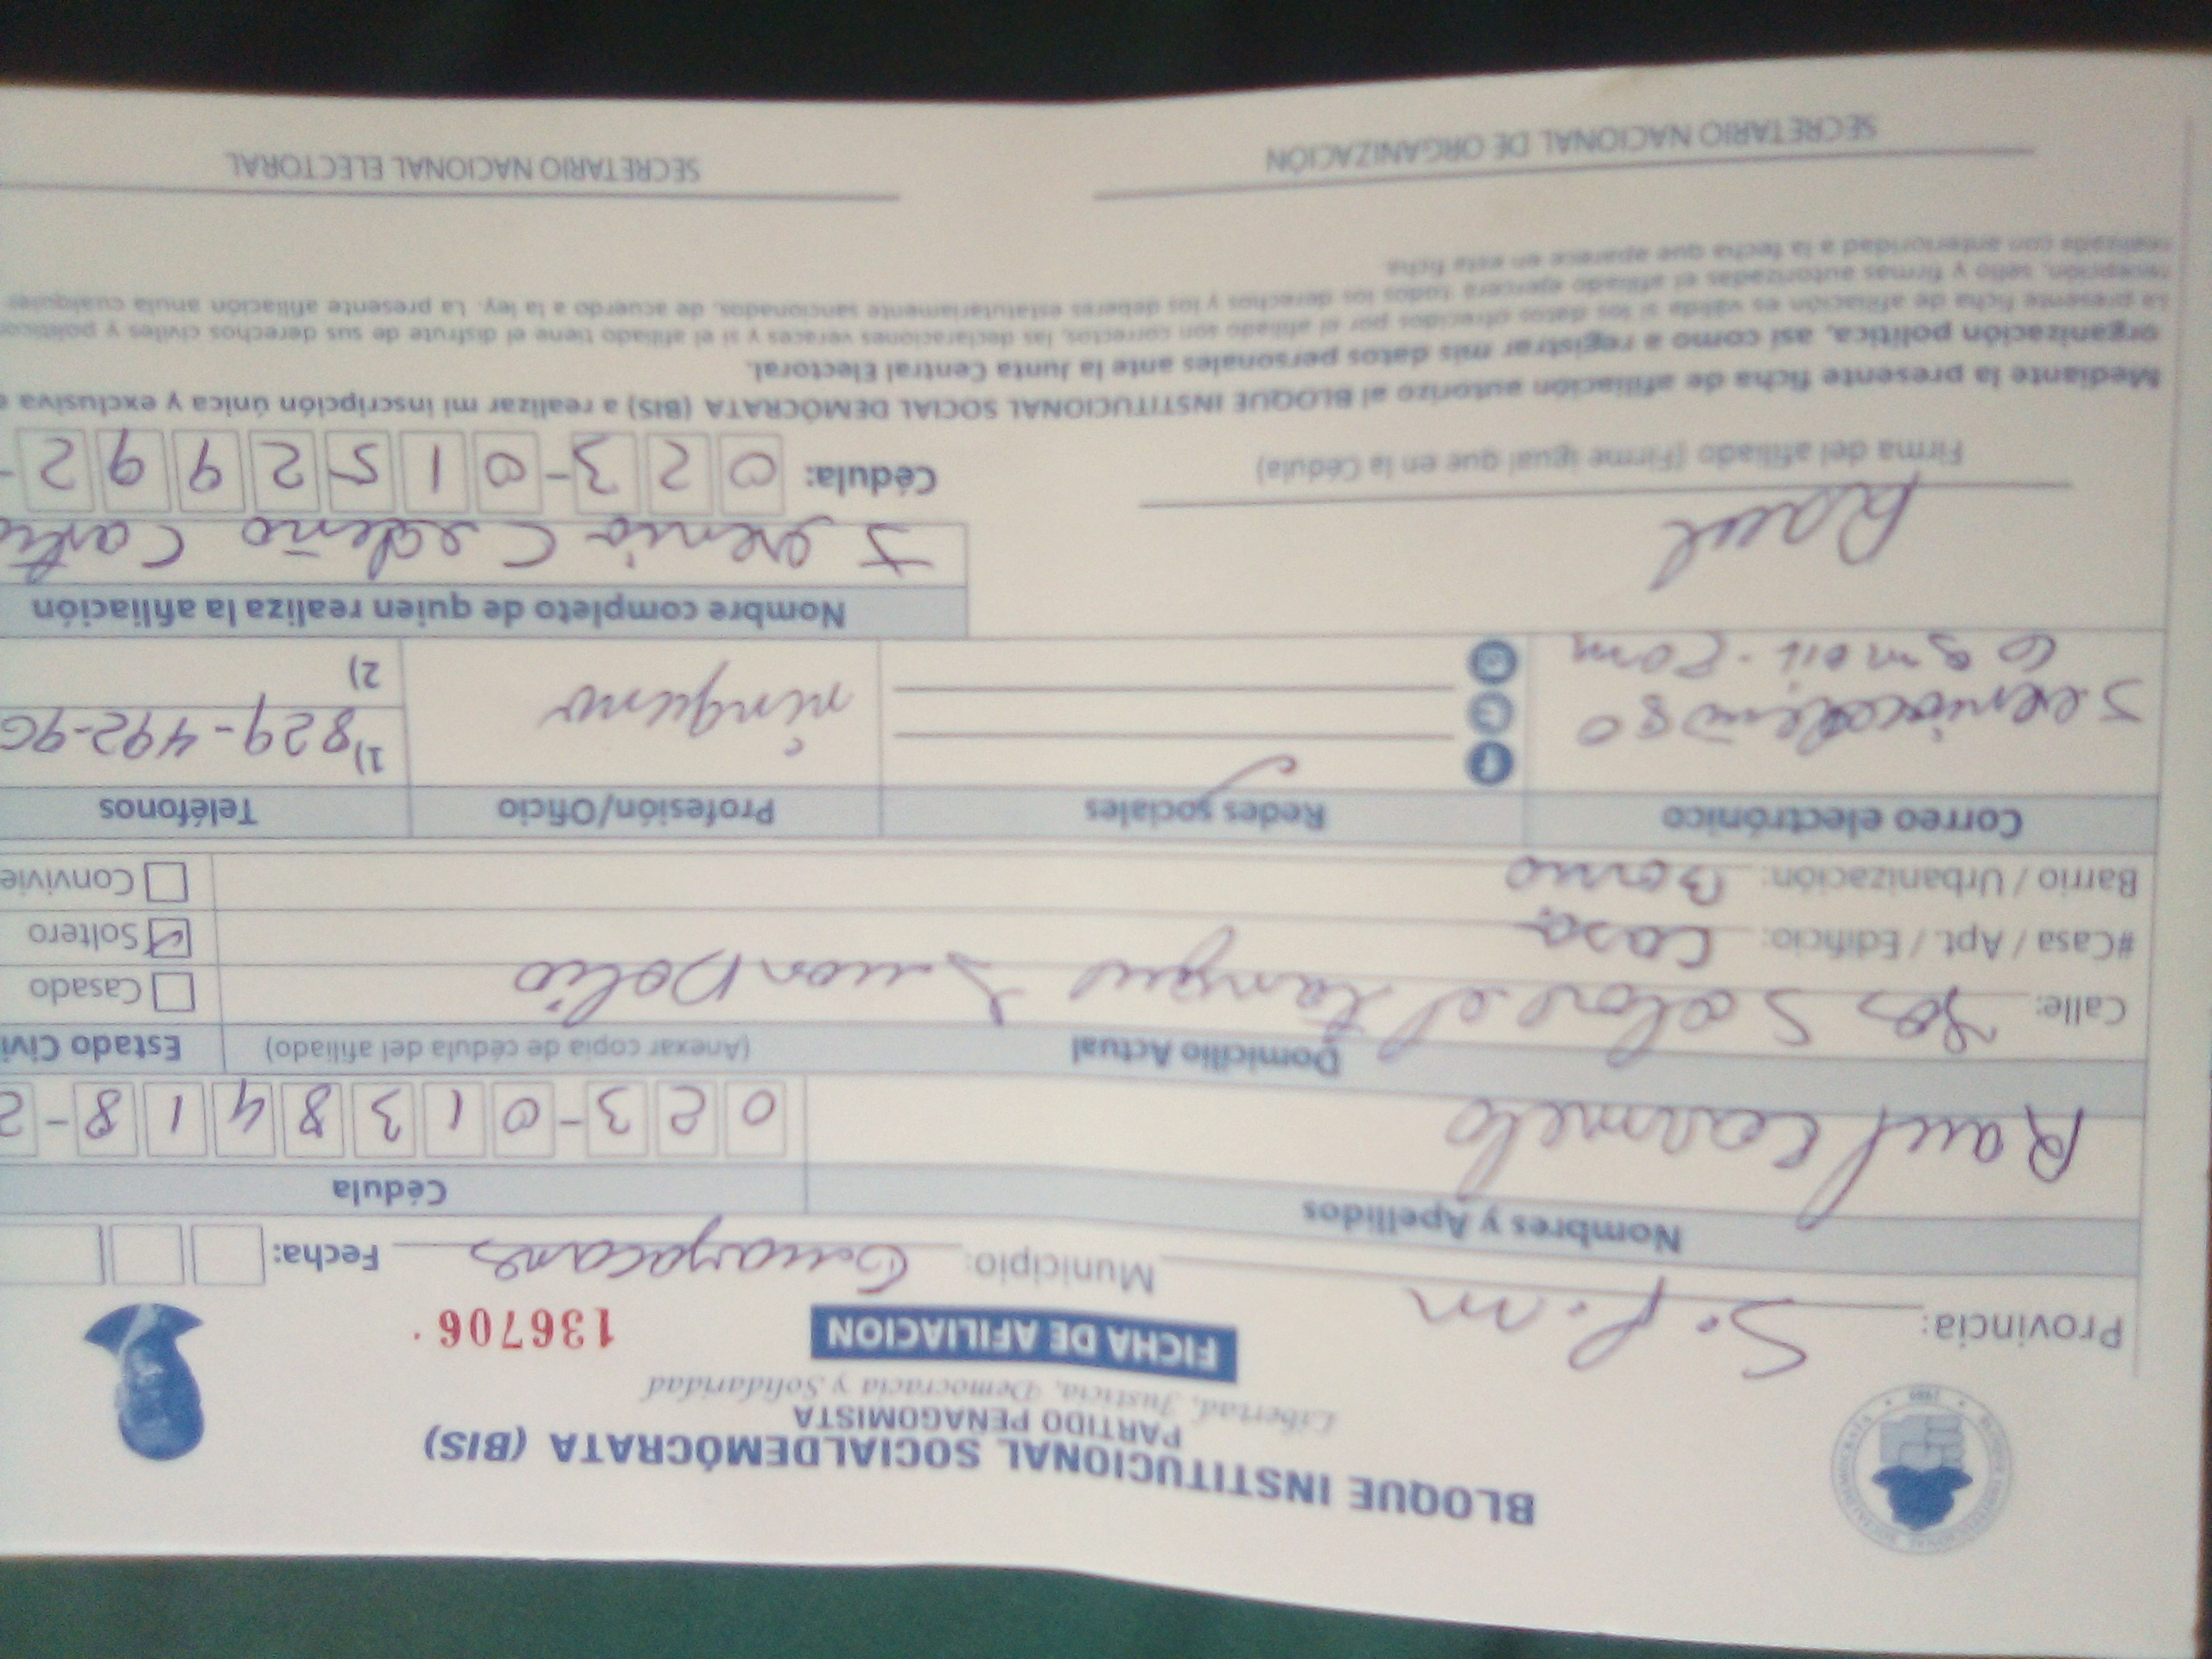 BLOQUE INSTITUCIONAL SOCIALDEMÓCRATA (BIS)
PARTIDO PEÑAGOMISTA
Libertad, Justicia, Democracia y Solidaridad
FICHA DE AFILIACION
136706
Provincia: S. P. m Municipio: Guayacanes Fecha:
Nombres y Apellidos Cédula
Raul 023-0138418-2
Domicilio Actual (Anexar copia de cédula del afiliado) Estado Civi
Calle: Juan Dolio
Casado
#Casa / Apt. / Edificio: Casa
Soltero
Barrio / Urbanización:
Convivie
Correo electrónico Redes sociales Profesión/Oficio Teléfonos
1) 829-492-9
ninguno
2)
Nombre completo de quien realiza la afiliación
Raul
Cedeño
Firma del afiliado (Firme igual que en la Cédula)
Cédula: 023-0152992-
Mediante la presente ficha de afiliación autorizo al BLOQUE INSTITUCIONAL SOCIAL DEMÓCRATA (BIS) a realizar mi inscripción única y exclusiva
organización política, así como a registrar mis datos personales ante la Junta Central Electoral.
La presente ficha de afiliación es válida si los datos ofrecidos por el afiliado son correctos, las declaraciones veraces y si el afiliado tiene el disfrute de sus derechos civiles y político
recepción, sello y firmas autorizadas el afiliado ejercerá todos los derechos y los deberes estatutariamente sancionados, de acuerdo a la ley. La presente afiliación anula cualquier
realizada con anterioridad a la fecha que aparece en esta ficha.
SECRETARIO NACIONAL DE ORGANIZACIÓN
SECRETARIO NACIONAL ELECTORAL